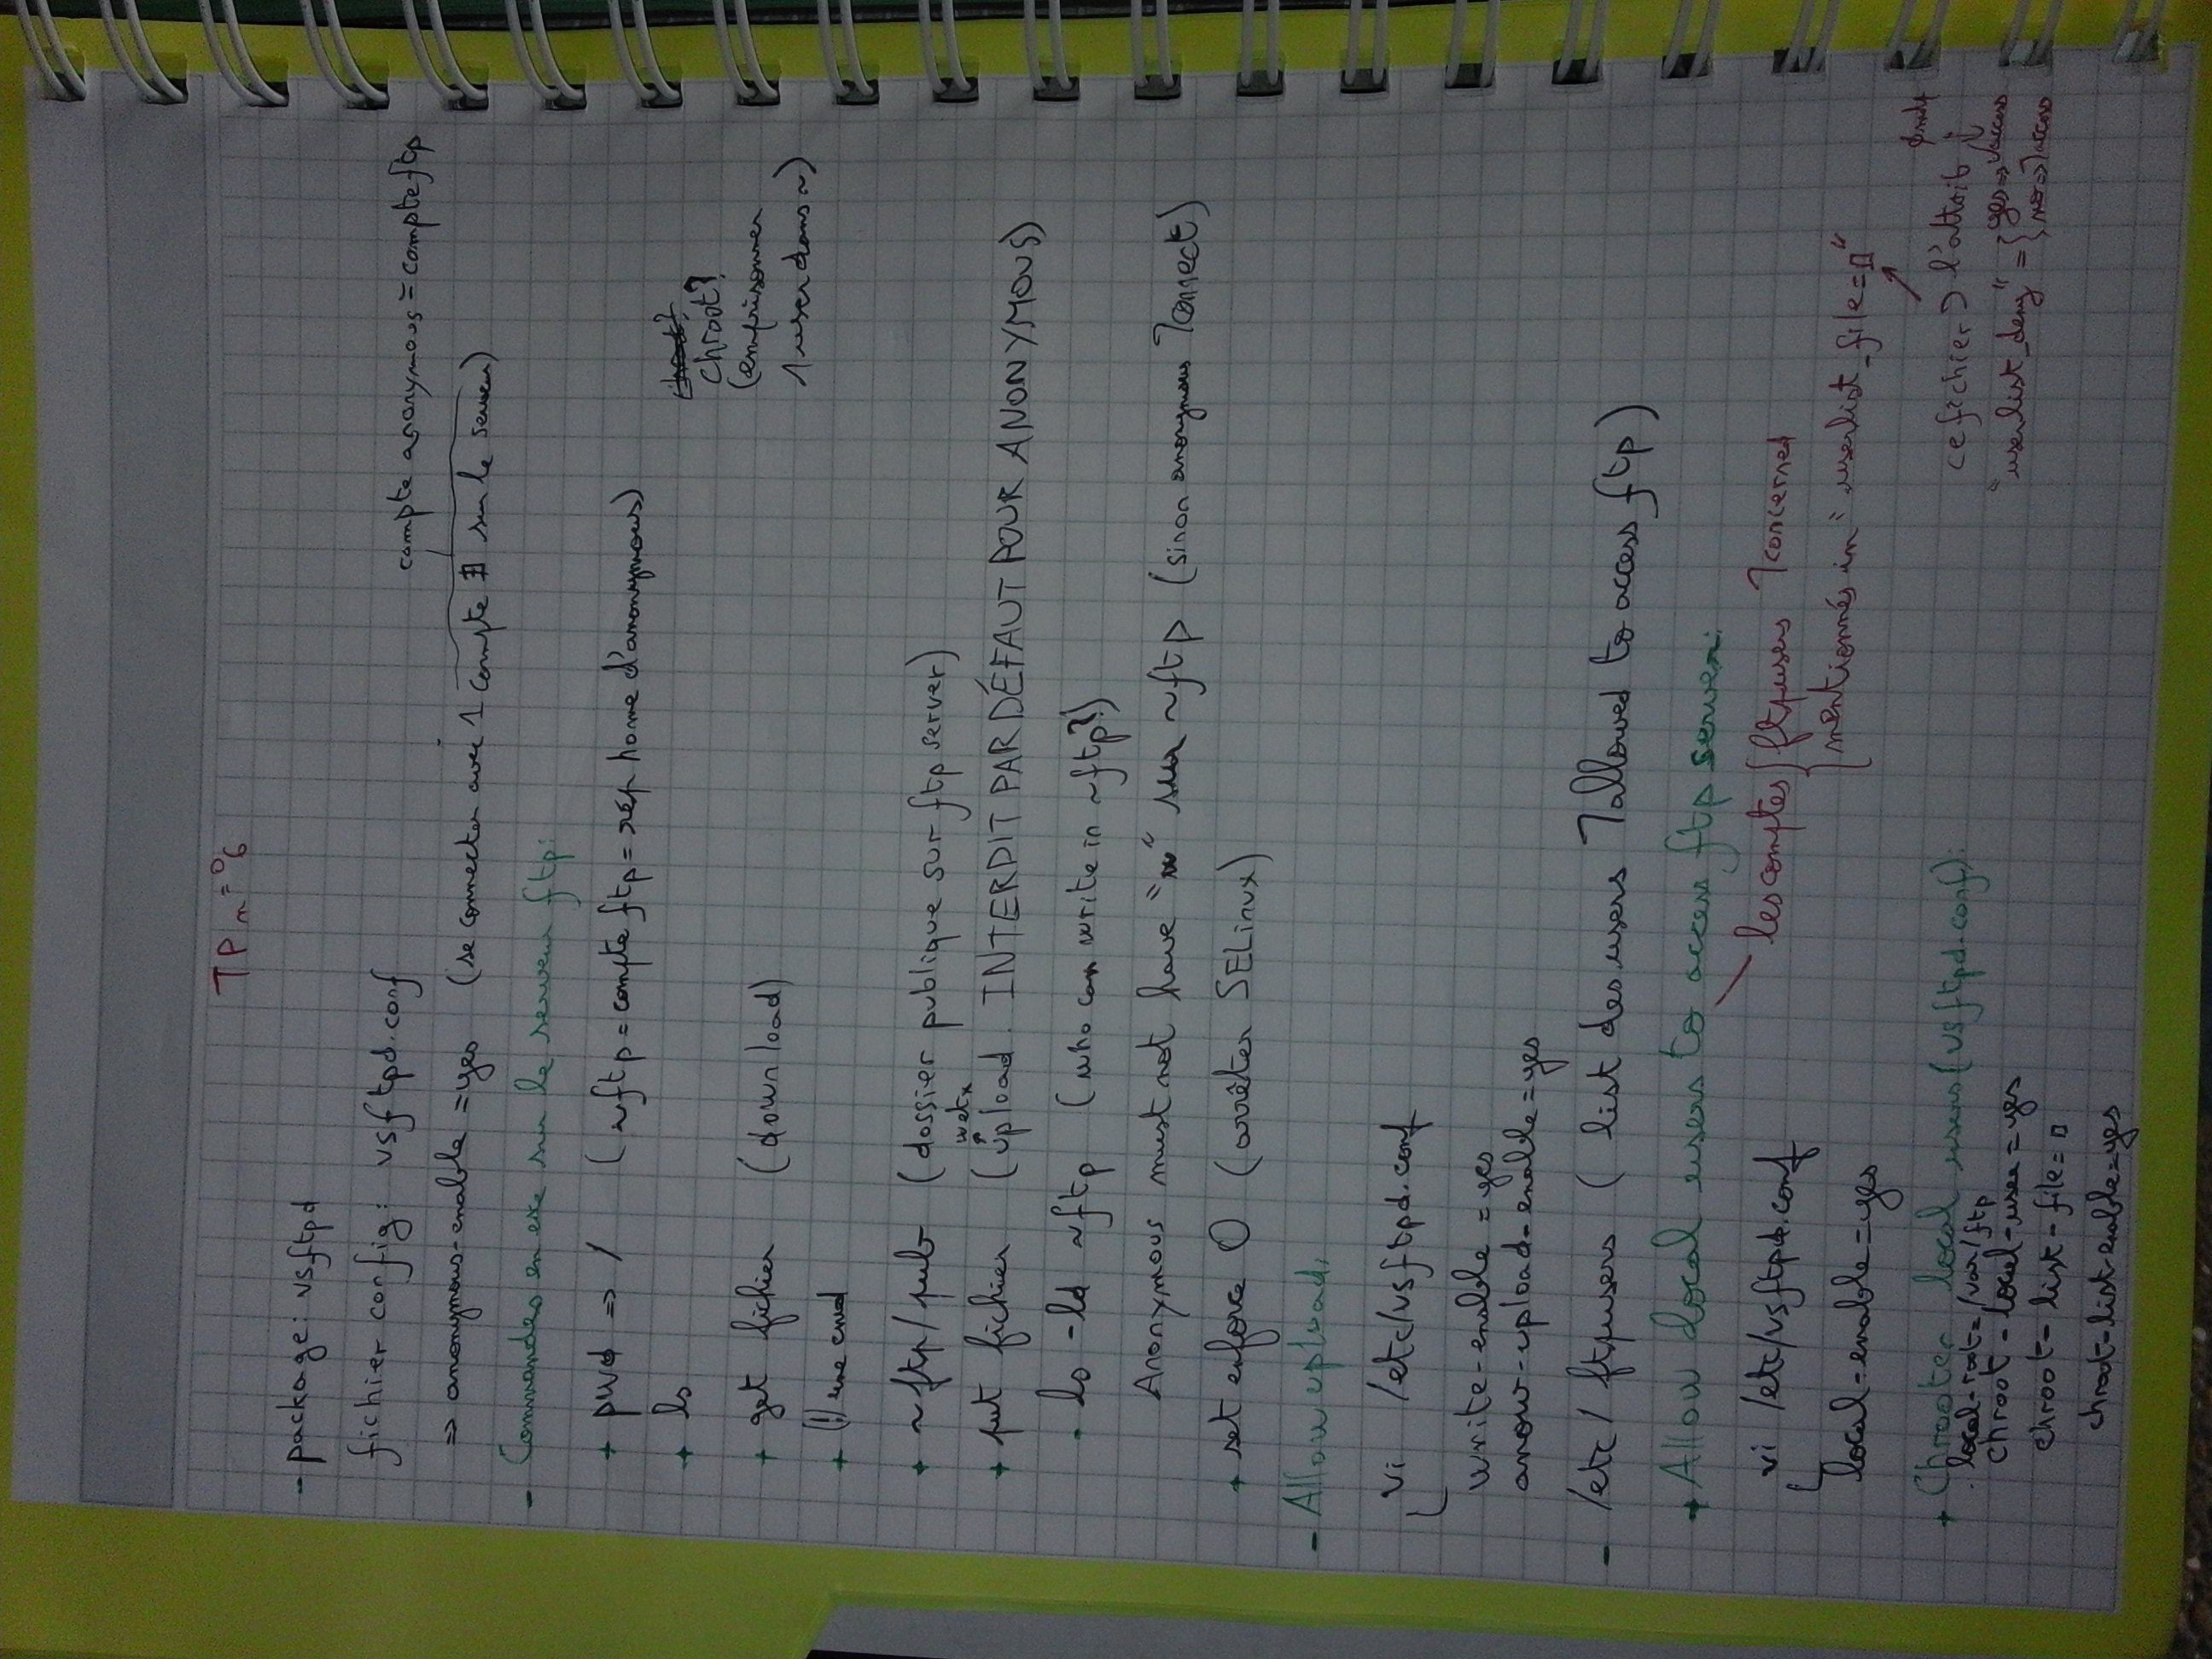 TP n=°6
- package: vsftpd
fichier config: vsftpd.conf
compte anonymous = compte ftp
=> anonymous-enable = yes (se connecter avec 1 compte ∄ sur le serveur)
- Commandes en exe sur le serveur ftp:
+ pwd => / (~ftp = compte ftp = rép home d'anonymous)
+ ls
chroot?
(emprisonner
1 user dans ~)
+ get fichier (download)
+ (!) une cmd
+ ~ftp/pub (dossier publique sur ftp server)
wetx
+ put fichier (upload. INTERDIT PAR DÉFAUT POUR ANONYMOUS)
. ls -ld ~ftp (who can write in ~ftp?)
Anonymous must not have "w" sur ~ftp (sinon anonymous ¬connect)
+ set enforce 0 (arrêter SELinux)
- Allow upload:
vi /etc/vsftpd.conf
write-enable = yes
anow-upload-enable=yes
- /etc/ftpusers ( list des users ¬allowed to access ftp )
+ Allow local users to access ftp server:
vi /etc/vsftpd.conf
les comptes { ftpusers ¬concerned
mentionnés in "userlist_file=□"
local-enable=yes
ce fichier ) l'attrib
"userlist_deny" = { yes => access
no => ¬access
+ Chrooter local users (vsftpd.conf):
local-root=/var/ftp
chroot-local-user=yes
chroot-list-file=□
chroot-list-enable=yes